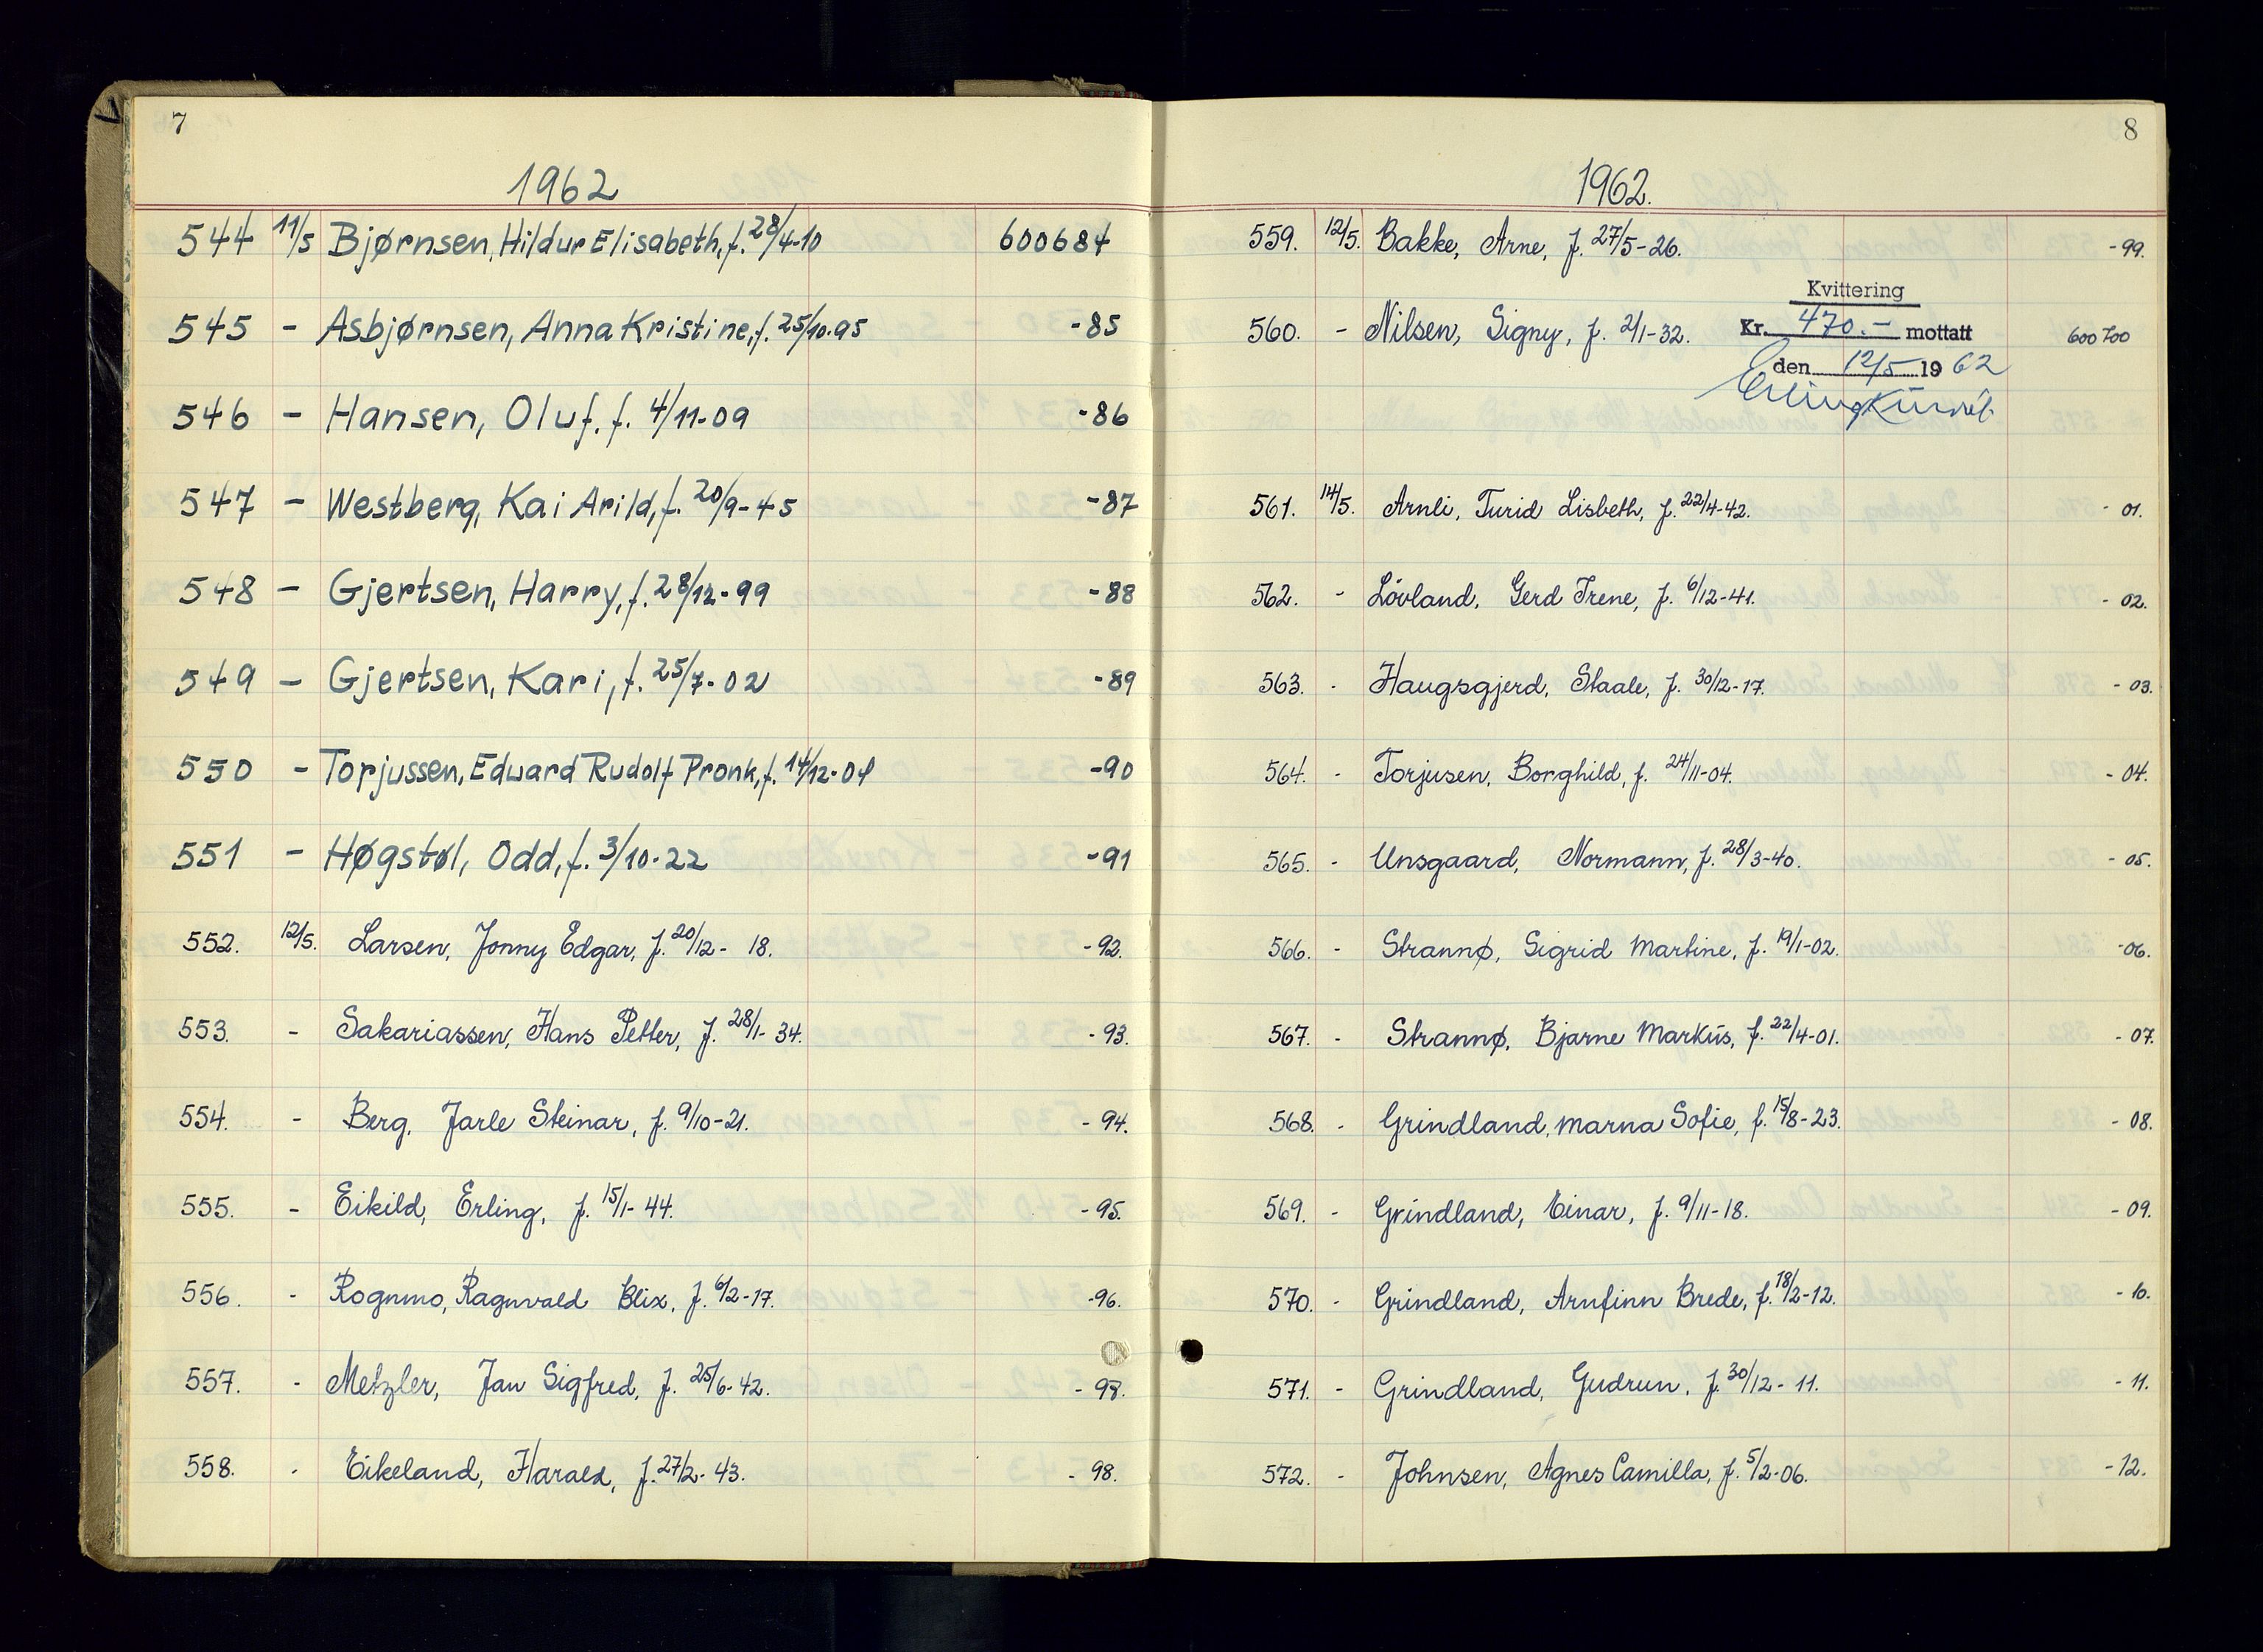 7
1962
544 11/5 Bjørnsen, Hildur Elisabeth, f. 28/4-10 600684
545 - Asbjørnsen, Anna Kristine, f. 25/10.95 -85
546 - Hansen, Oluf, f. 4/11-09 -86
547 - Westberg, Kai Arild, f. 20/9-45 -87
548 - Gjertsen, Harry, f. 28/12-99 -88
549 - Gjertsen, Kari, f. 25/7-02 -89
550 - Torjussen, Edward Rudolf Pronk, f. 14/12-01 -90
551 - Høgstøl, Odd, f. 3/10-22 -91
552. 12/5. Larsen, Jonny Edgar, f. 20/12- 18. -92.
553. - Sakariassen, Hans Petter, f. 28/1- 34. -93.
554. - Berg, Jarle Steinar, f. 9/10-21. -94.
555. - Eikild, Erling, f. 15/1- 44. -95.
556. - Rognmo, Ragnvald Blix, f. 6/2-17. -96.
557. - Metzler, Jan Sigfred, f. 25/6-42. -97.
558. - Eikeland, Harald, f. 27/2- 43. -98.
8
1962.
559. 12/5. Bakke, Arne, f. 27/5-26. -99.
Kvittering
560. - Nilsen, Signy, f. 2/1-32. Kr. 470.- mottatt 600700
den 12/5 1962
Erling
561. 14/5. Arnli, Turid Lisbeth, f. 22/4-42. - 01.
562. - Lövland, Gerd Irene, f. 6/12-41. - 02.
563. - Haugsgjerd, Staale, f. 30/12-17. - 03.
564. - Torjusen, Borghild, f. 24/11-04. - 04.
565. - Unsgaard, Normann, f. 28/3-40. - 05.
566. - Strannø, Sigrid Martine, f. 19/1-02. -06.
567. - Strannø, Bjarne Markus, f. 22/4-01. - 07.
568. - Grindland, Marna Sofie, f. 15/8-23. - 08.
569. - Grindland, Einar, f. 9/11-18. - 09.
570. - Grindland, Arnfinn Brede, f. 18/2-12. - 10.
571. - Grindland, Gudrun, f. 30/12- 11. - 11.
572. - Johnsen, Agnes Camilla, f. 5/2-06. -12.